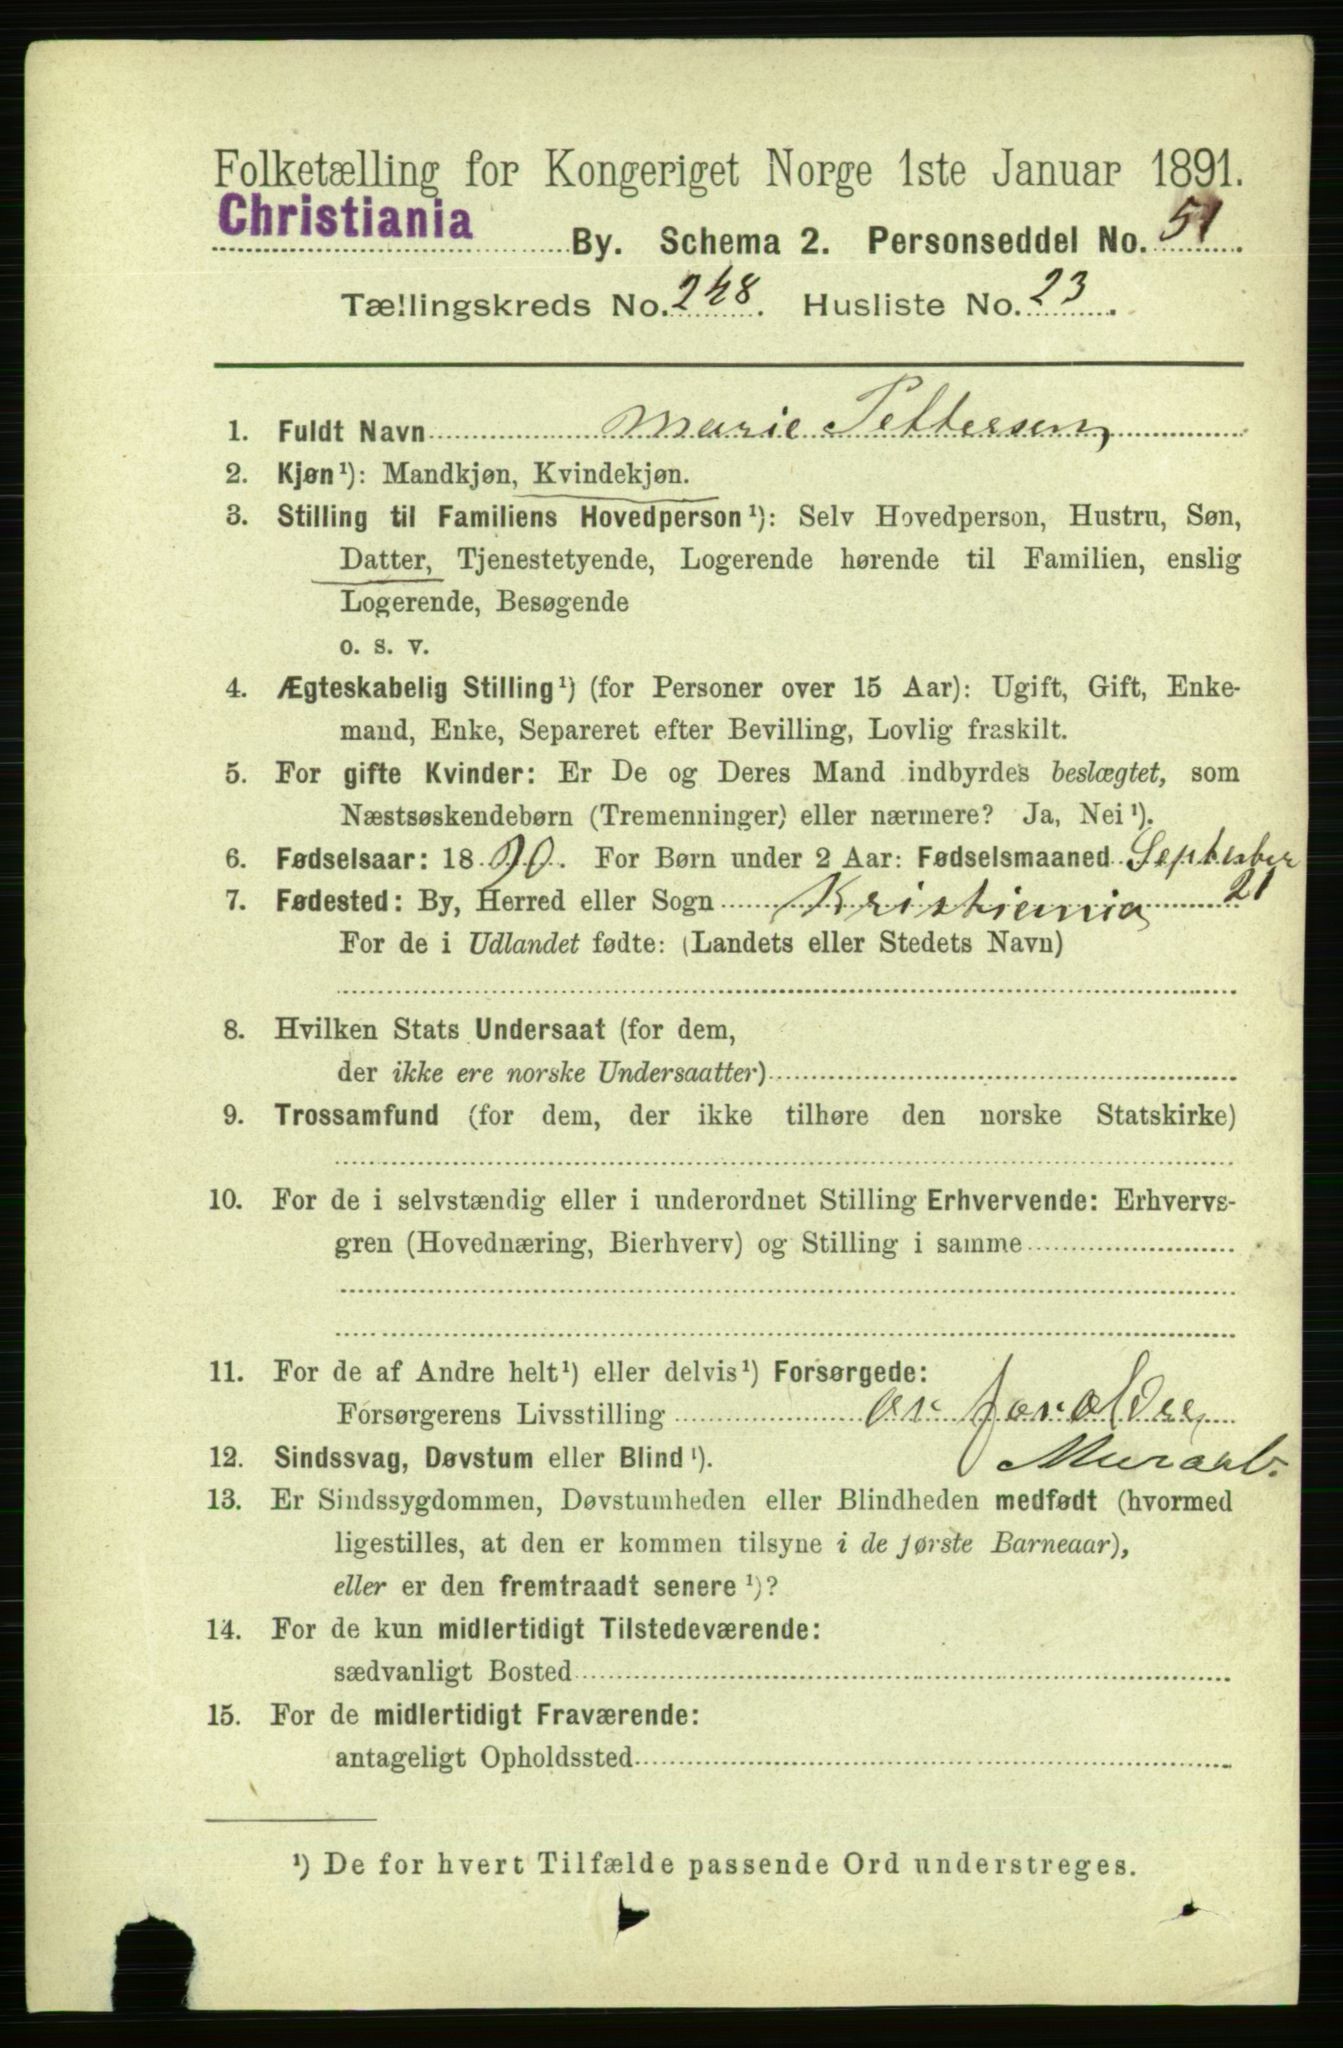 Folketælling for Kongeriget Norge 1ste Januar 1891.
Christiania By. Schema 2. Personseddel No. 51.
Tællingskreds No. 248. Husliste No. 23.
1. Fuldt Navn Marie Pettersen
2. Kjøn¹): Mandkjøn, Kvindekjøn.
3. Stilling til Familiens Hovedperson¹): Selv Hovedperson, Hustru, Søn,
Datter, Tjenestetyende, Logerende hørende til Familien, enslig
Logerende, Besøgende
o. s. v.
4. Ægteskabelig Stilling¹) (for Personer over 15 Aar): Ugift, Gift, Enke-
mand, Enke, Separeret efter Bevilling, Lovlig fraskilt.
5. For gifte Kvinder: Er De og Deres Mand indbyrdes beslægtet, som
Næstsøskendebørn (Tremenninger) eller nærmere? Ja, Nei¹).
6. Fødselsaar: 1890. For Børn under 2 Aar: Fødselsmaaned September
21
7. Fødested: By, Herred eller Sogn Kristiania
For de i Udlandet fødte: (Landets eller Stedets Navn)
8. Hvilken Stats Undersaat (for dem,
der ikke ere norske Undersaatter)
9. Trossamfund (for dem, der ikke tilhøre den norske Statskirke)
10. For de i selvstændig eller i underordnet Stilling Erhvervende: Erhvervs-
gren (Hovednæring, Bierhverv) og Stilling i samme
11. For de af Andre helt¹) eller delvis¹) Forsørgede:
Forsørgerens Livsstilling av foroldre
Murarb.
12. Sindssvag, Døvstum eller Blind¹).
13. Er Sindssygdommen, Døvstumheden eller Blindheden medfødt (hvormed
ligestilles, at den er kommen tilsyne i de første Barneaar),
eller er den fremtraadt senere¹)?
14. For de kun midlertidigt Tilstedeværende:
sædvanligt Bosted
15. For de midlertidigt Fraværende:
antageligt Opholdssted
¹) De for hvert Tilfælde passende Ord understreges.